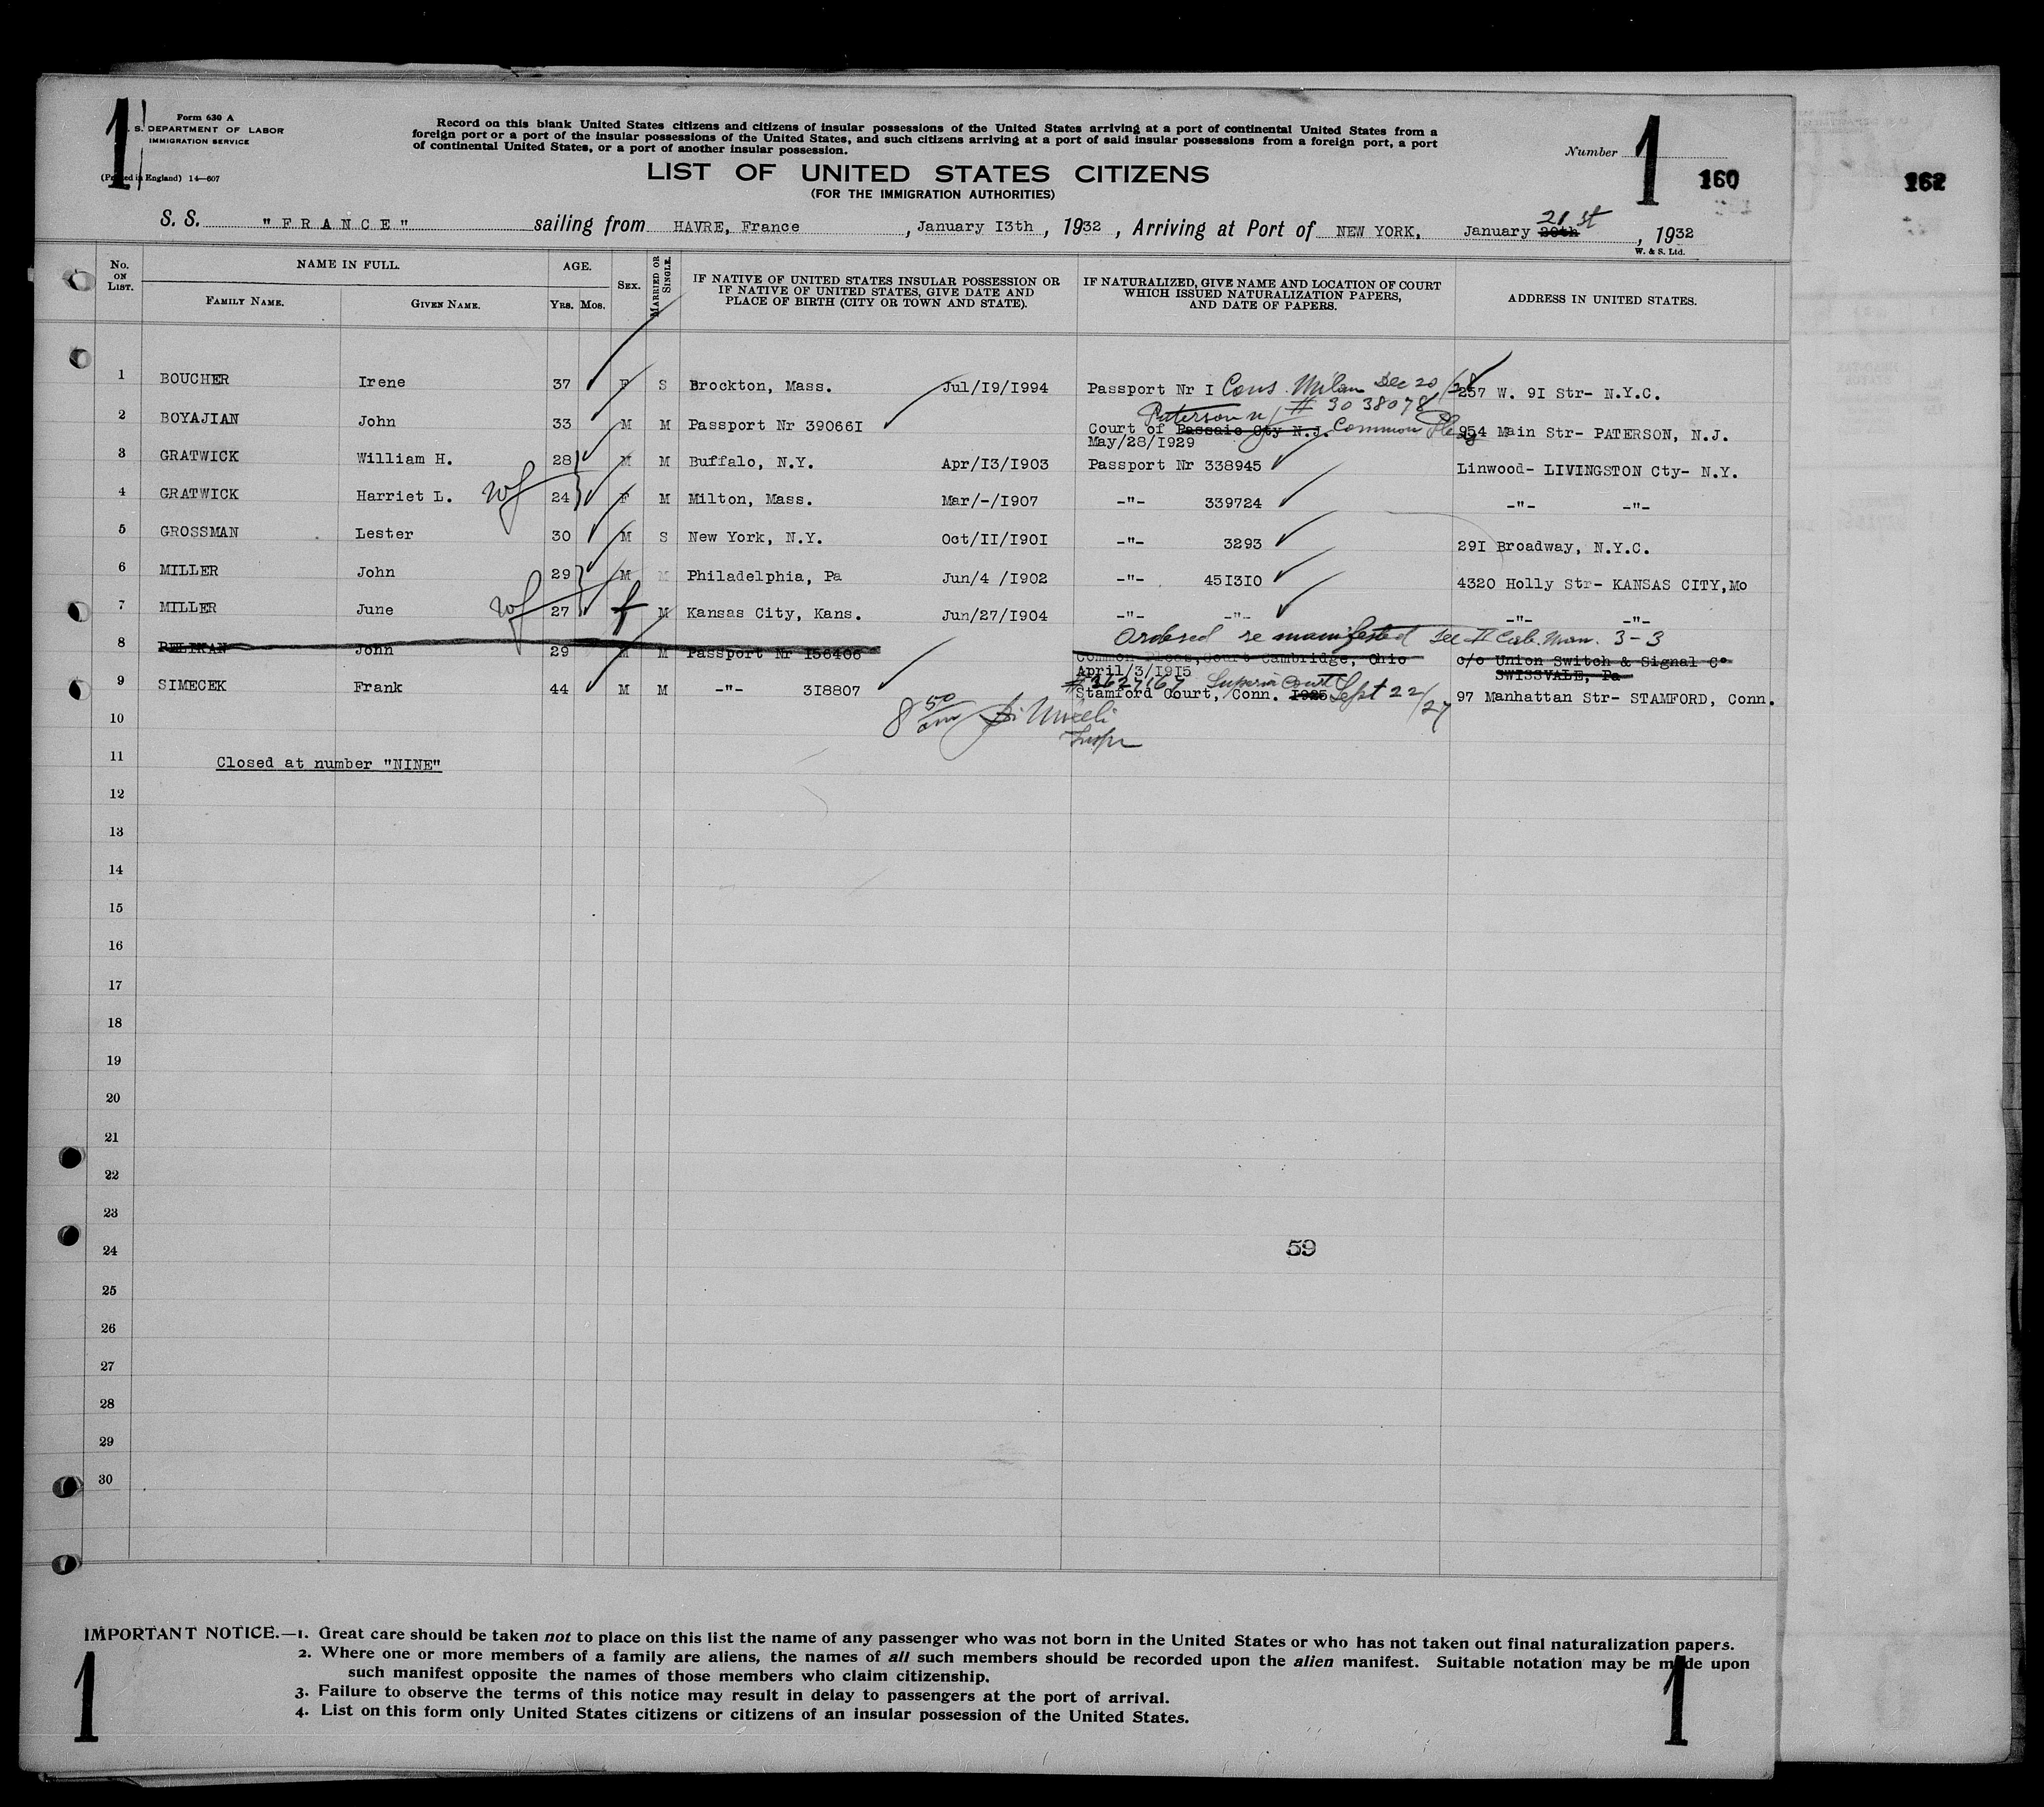 1
Form 630 A
U. S. DEPARTMENT OF LABOR
IMMIGRATION SERVICE
(Printed in England) 14—607
Record on this blank United States citizens and citizens of insular possessions of the United States arriving at a port of continental United States from a
foreign port or a port of the insular possessions of the United States, and such citizens arriving at a port of said insular possessions from a foreign port, a port
of continental United States, or a port of another insular possession.
LIST OF UNITED STATES CITIZENS
(FOR THE IMMIGRATION AUTHORITIES)
Number 1 160
162
S. S. "FRANCE" sailing from HAVRE, France, January I3th, 1932, Arriving at Port of NEW YORK, January 20th 21st, 1932
W. & S. Ltd.
No. ON LIST. NAME IN FULL. AGE. SEX. MARRIED OR SINGLE. IF NATIVE OF UNITED STATES INSULAR POSSESSION OR IF NATIVE OF UNITED STATES, GIVE DATE AND PLACE OF BIRTH (CITY OR TOWN AND STATE). IF NATURALIZED, GIVE NAME AND LOCATION OF COURT WHICH ISSUED NATURALIZATION PAPERS, AND DATE OF PAPERS. ADDRESS IN UNITED STATES.
FAMILY NAME. GIVEN NAME. YRS. MOS.
1 BOUCHER Irene 37 F S Brockton, Mass. Jul/I9/I994 Passport Nr I Cons. Milan Dec 20/28 257 W. 9I Str- N.Y.C.
Paterson # 3038078
2 BOYAJIAN John 33 M M Passport Nr 39066I Court of Passaic Cty N.J. Common 954 Main Str- PATERSON, N.J.
May/28/I929
3 GRATWICK William H. 28 M M Buffalo, N.Y. Apr/I3/I903 Passport Nr 338945 Linwood- LIVINGSTON Cty- N.Y.
4 GRATWICK Harriet L. wf 24 F M Milton, Mass. Mar/-/I907 -"- 339724 -"- -"-
5 GROSSMAN Lester 30 M S New York, N.Y. Oct/II/I90I -"- 3293 29I Broadway, N.Y.C.
6 MILLER John 29 M M Philadelphia, Pa Jun/4 /I902 -"- 45I3I0 4320 Holly Str- KANSAS CITY,Mo
7 MILLER June wf 27 f M Kansas City, Kans. Jun/27/I904 -"- -"- -"- -"-
Ordered re manifested see II Cab. Man. 3-3
8 John 29 M M Passport Nr I56406 Common Pleas,Court Cambridge, Ohio c/o Union Switch & Signal C°
April/3/I9I5 SWISSVALE, Pa
#3627167 Superior Court
9 SIMECEK Frank 44 M M -"- 3I8807 Stamford Court, Conn. I925 Sept 22/27 97 Manhattan Str- STAMFORD, Conn.
10
8 50 am
Inspr
11 Closed at number "NINE"
12
13
14
15
16
17
18
19
20
21
22
23
24 59
25
26
27
28
29
30
IMPORTANT NOTICE.—1. Great care should be taken not to place on this list the name of any passenger who was not born in the United States or who has not taken out final naturalization papers.
2. Where one or more members of a family are aliens, the names of all such members should be recorded upon the alien manifest. Suitable notation may be made upon
such manifest opposite the names of those members who claim citizenship.
3. Failure to observe the terms of this notice may result in delay to passengers at the port of arrival.
4. List on this form only United States citizens or citizens of an insular possession of the United States.
1 1